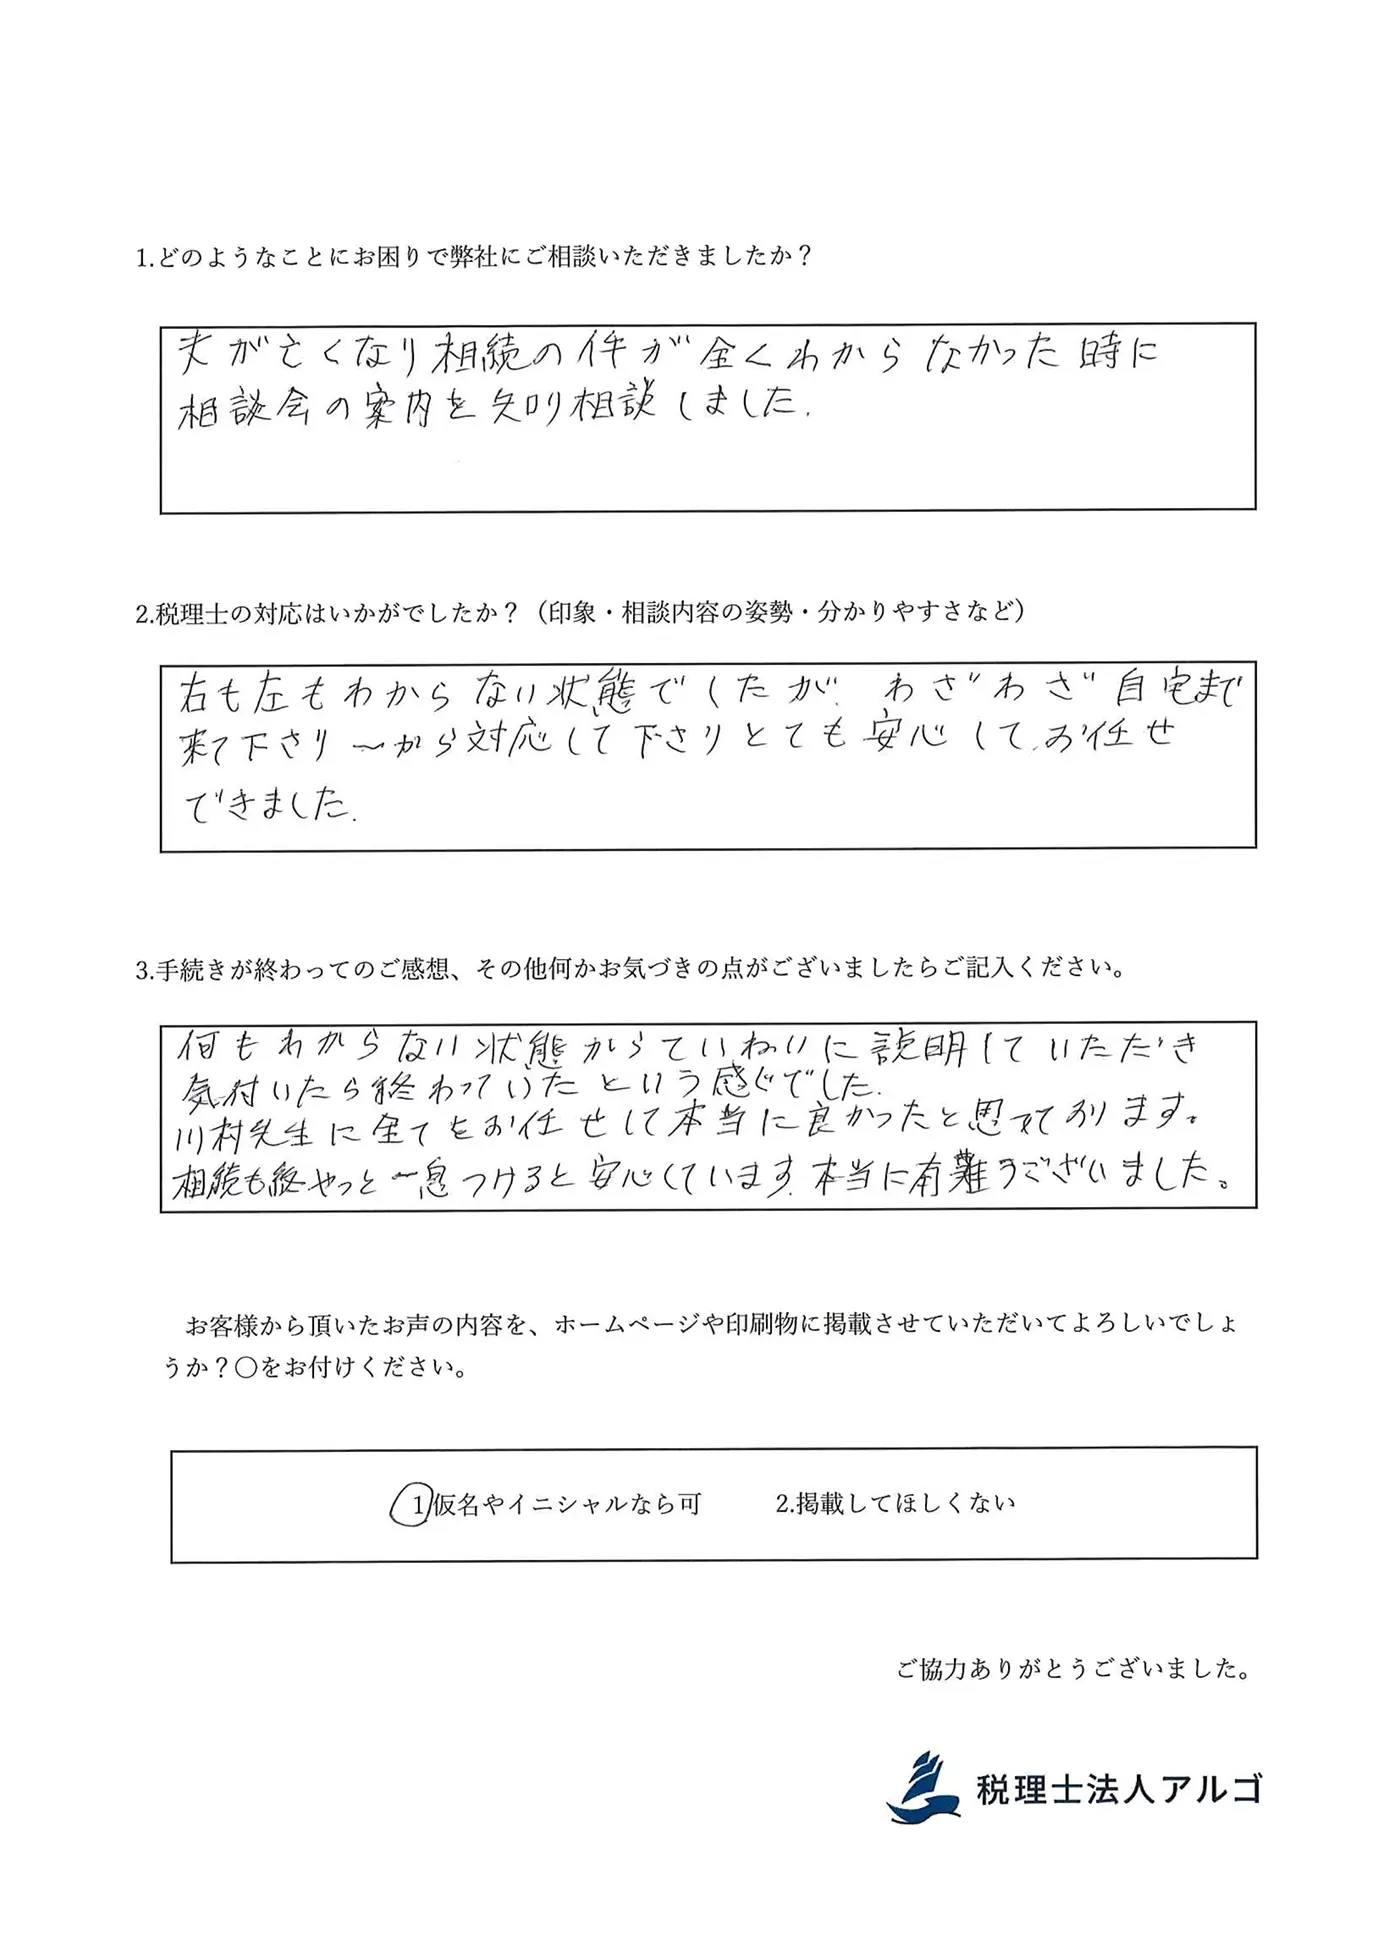 1.どのようなことにお困りで弊社にご相談いただきましたか？
夫が亡くなり相続の件が全くわからなかった時に
相談会の案内を知り相談しました.
2.税理士の対応はいかがでしたか？（印象・相談内容の姿勢・分かりやすさなど）
右も左もわからない状態でしたが、わざわざ自宅まで
来て下さり一から対応して下さりとても安心して、お任せ
できました.
3.手続きが終わってのご感想、その他何かお気づきの点がございましたらご記入ください。
何もわからない状態からていねいに説明していただき
気付いたら終わっていたという感じでした.
川村先生に全てをお任せして本当に良かったと思っております。
相続も終やっと一息つけると安心しています.本当に有難うございました。
お客様から頂いたお声の内容を、ホームページや印刷物に掲載させていただいてよろしいでしょ
うか？〇をお付けください。
1仮名やイニシャルなら可 2.掲載してほしくない
ご協力ありがとうございました。
税理士法人アルゴ